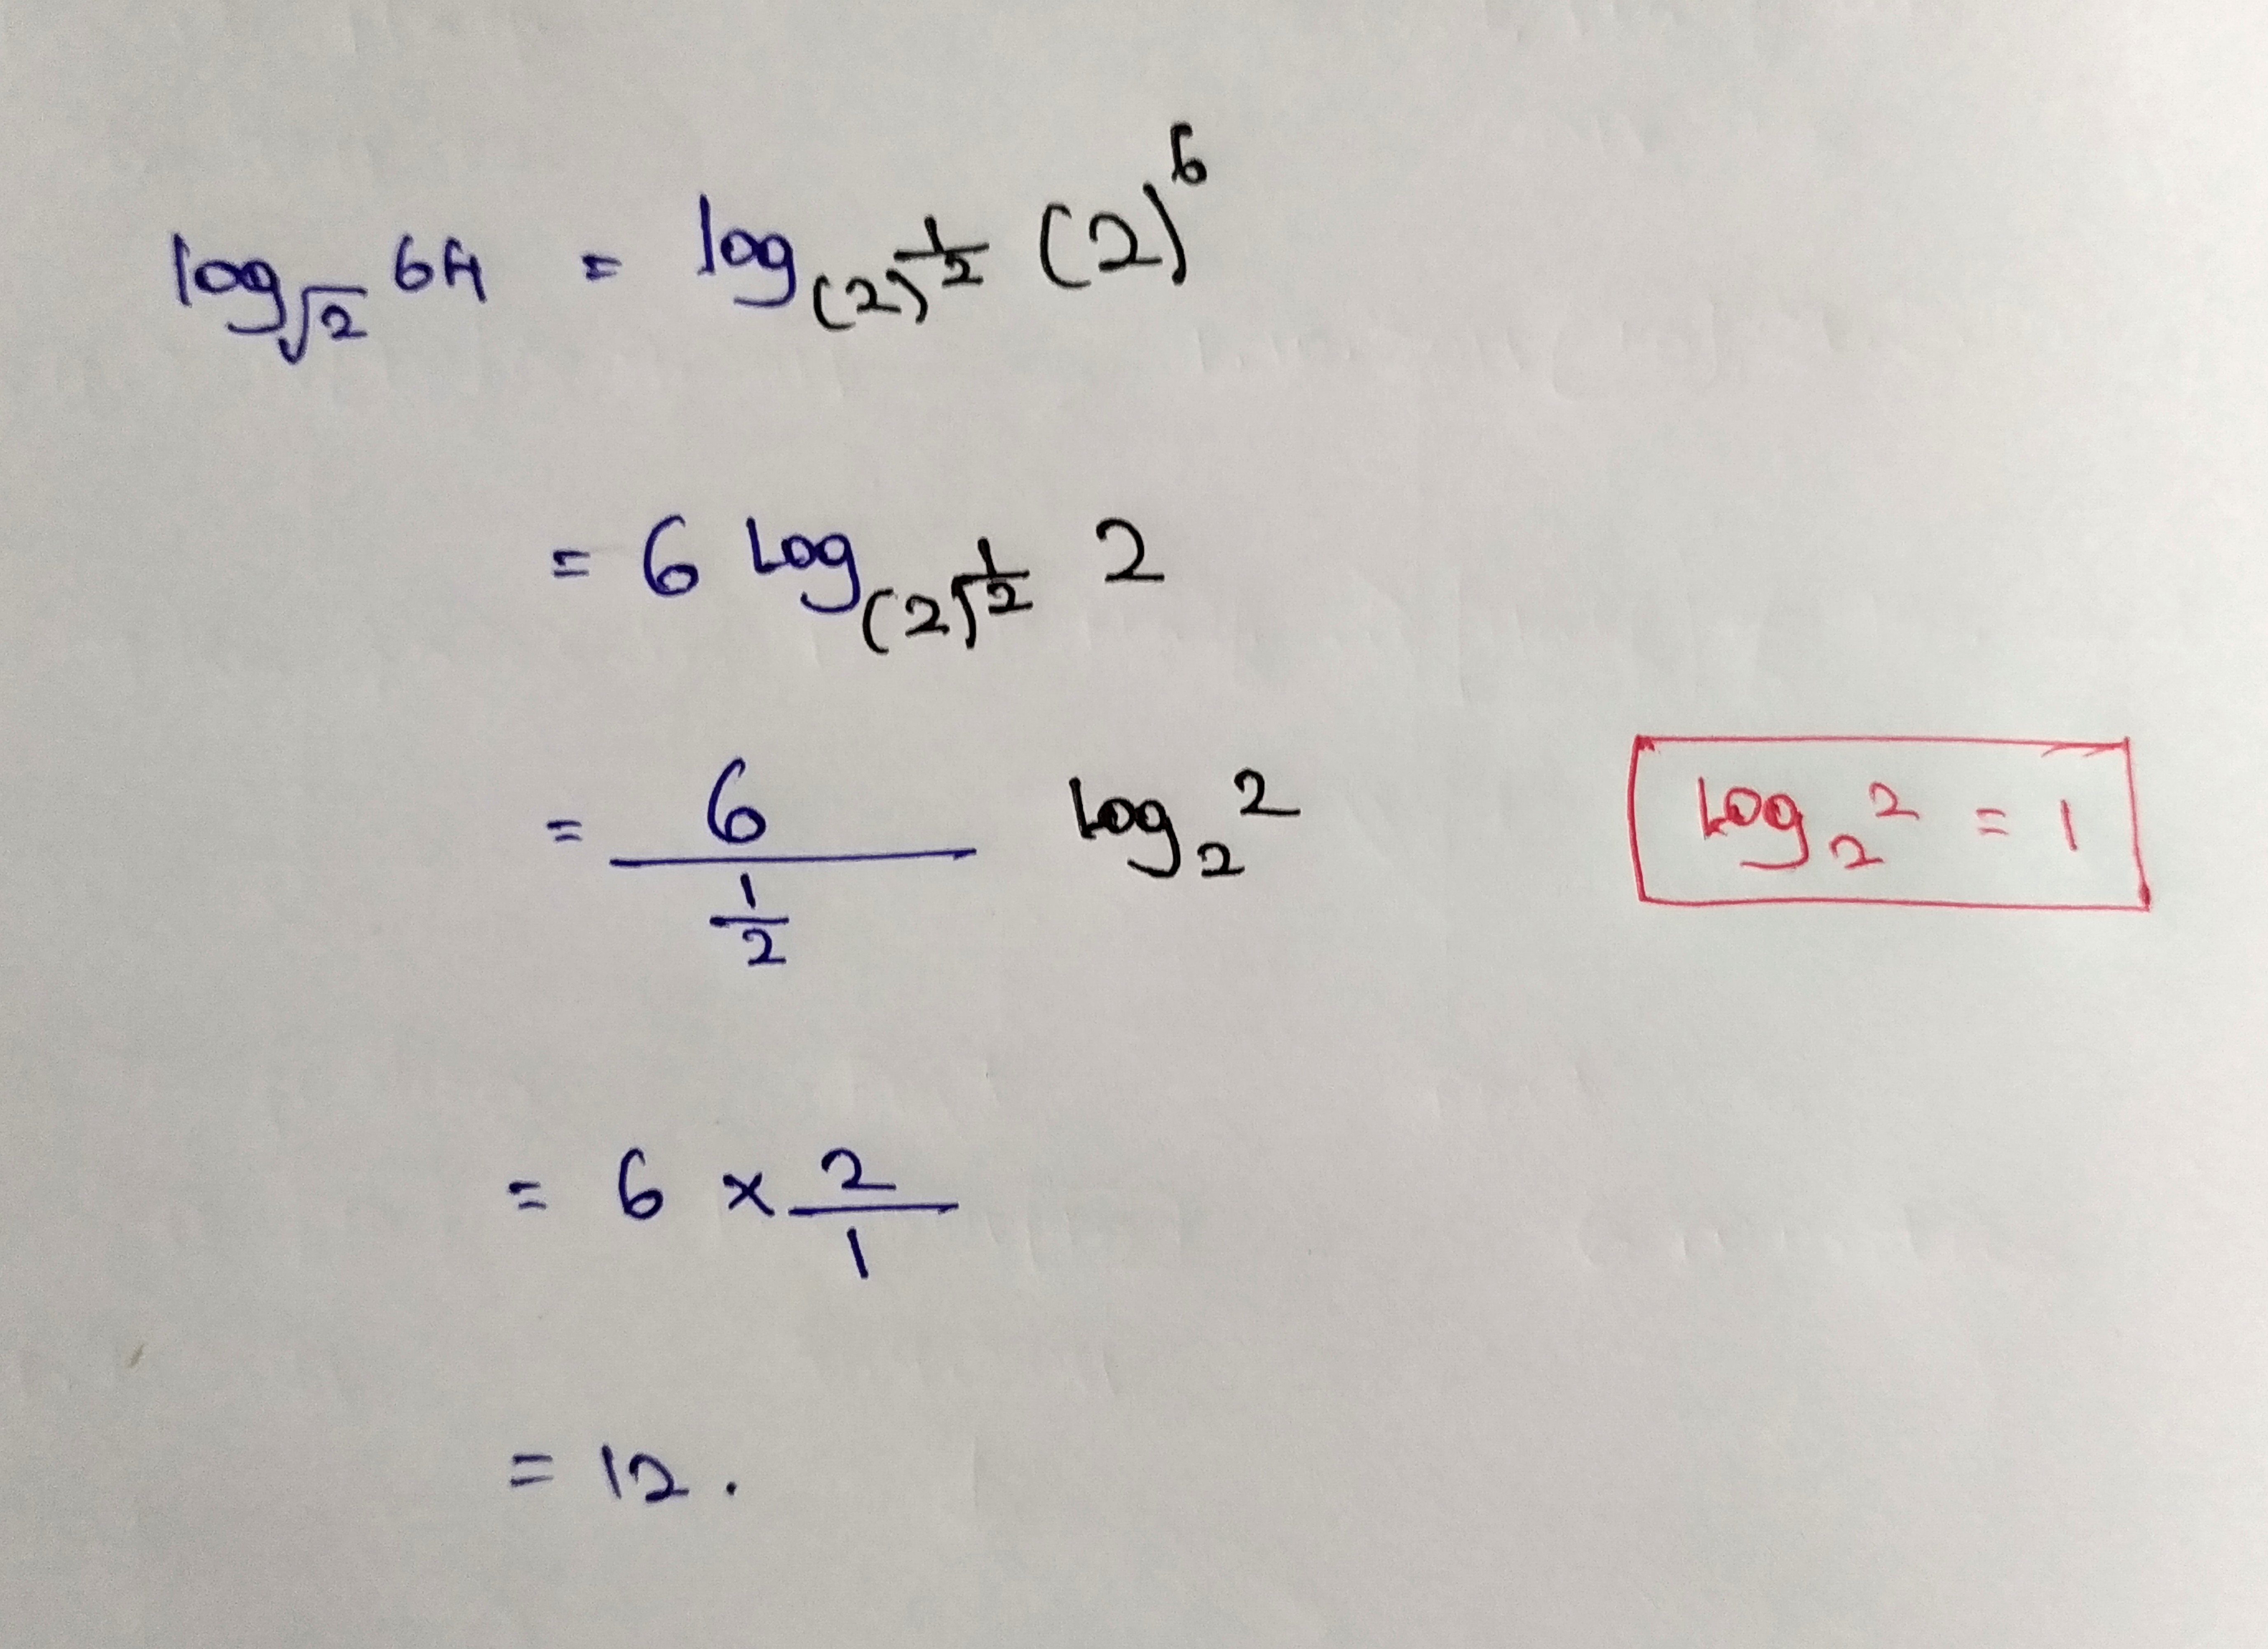 log_√2 64 = log_(2)^1/2 (2)^6
= 6 Log_(2)^1/2 2
= 6/(1/2) Log_2 2
Log_2 2 = 1
= 6 × 2/1
= 12.